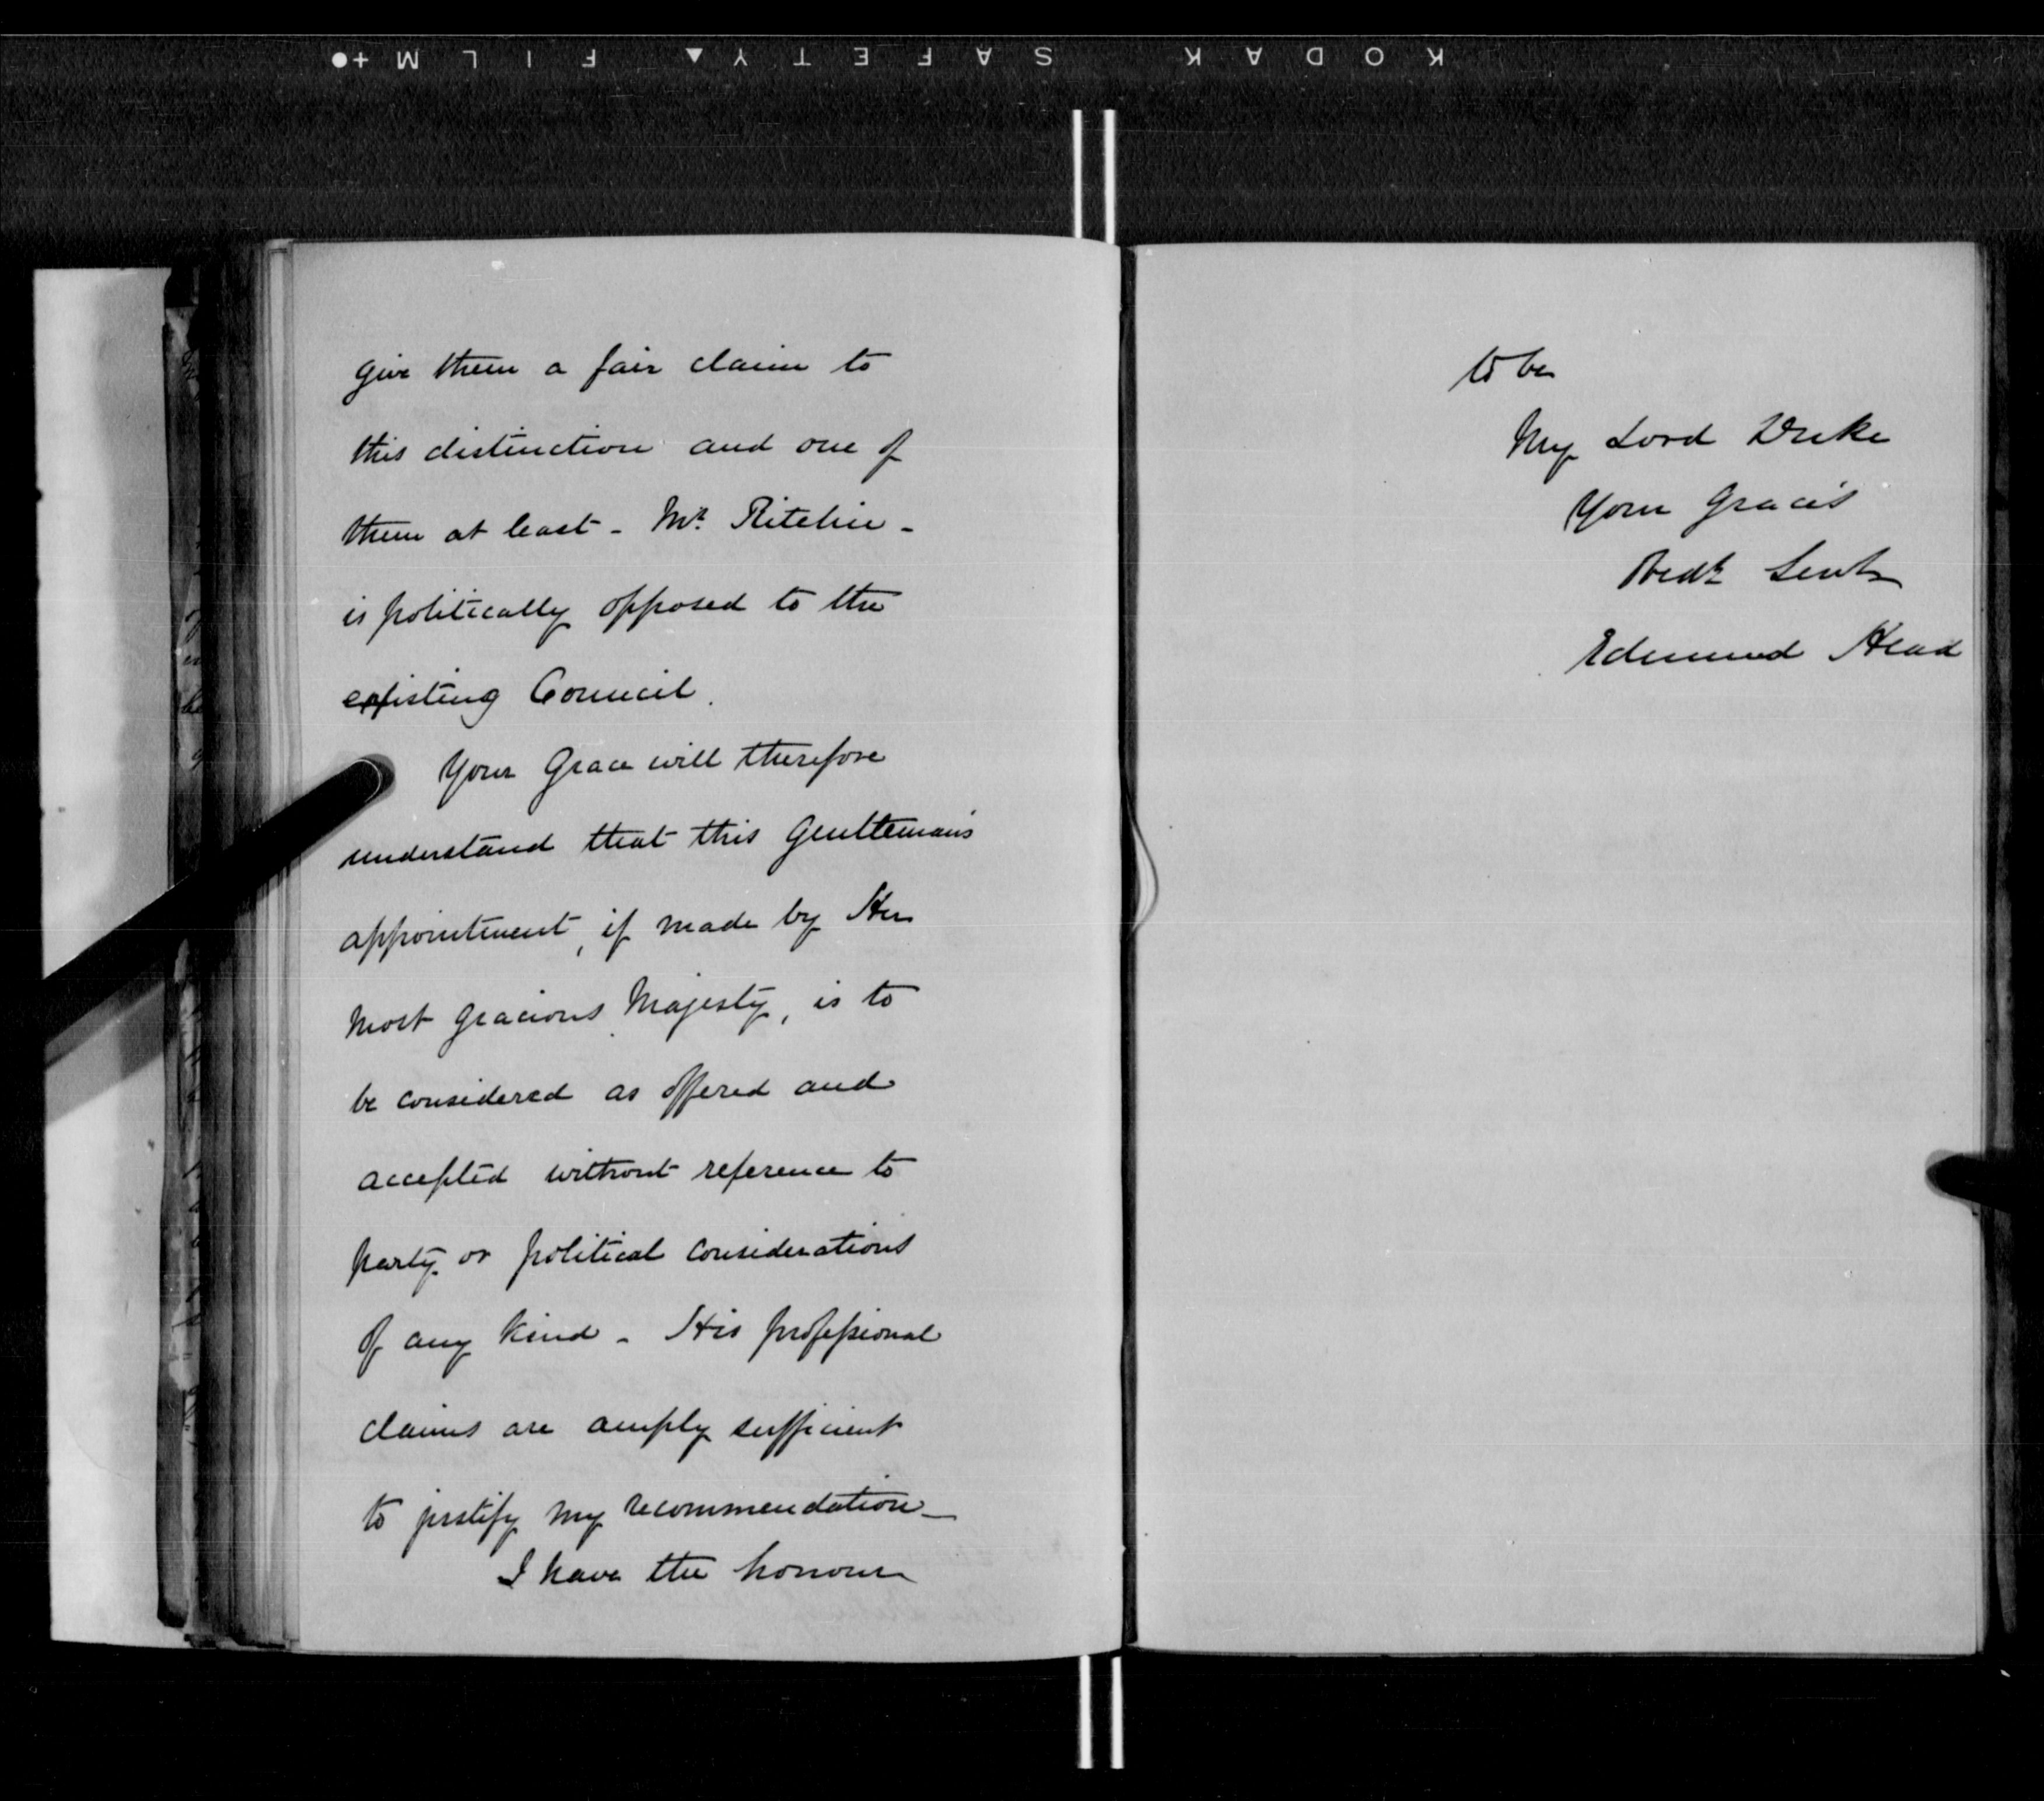 KODAK SAFETY▲ FILM +●
give them a fair claim to
this distinction and one of
them at least - Mr. Ritchie -
is politically opposed to the
existing Council.
Your Grace will therefore
understand that this Gentleman's
appointment, if made by Her
Most Gracious Majesty, is to
be considered as offered and
accepted without reference to
party or political considerations
of any kind - His professional
claims are amply sufficient
to justify my recommendation -
I have the honour
to be
My Lord Duke
Your Grace's
Obedt Servt
Edmund Head